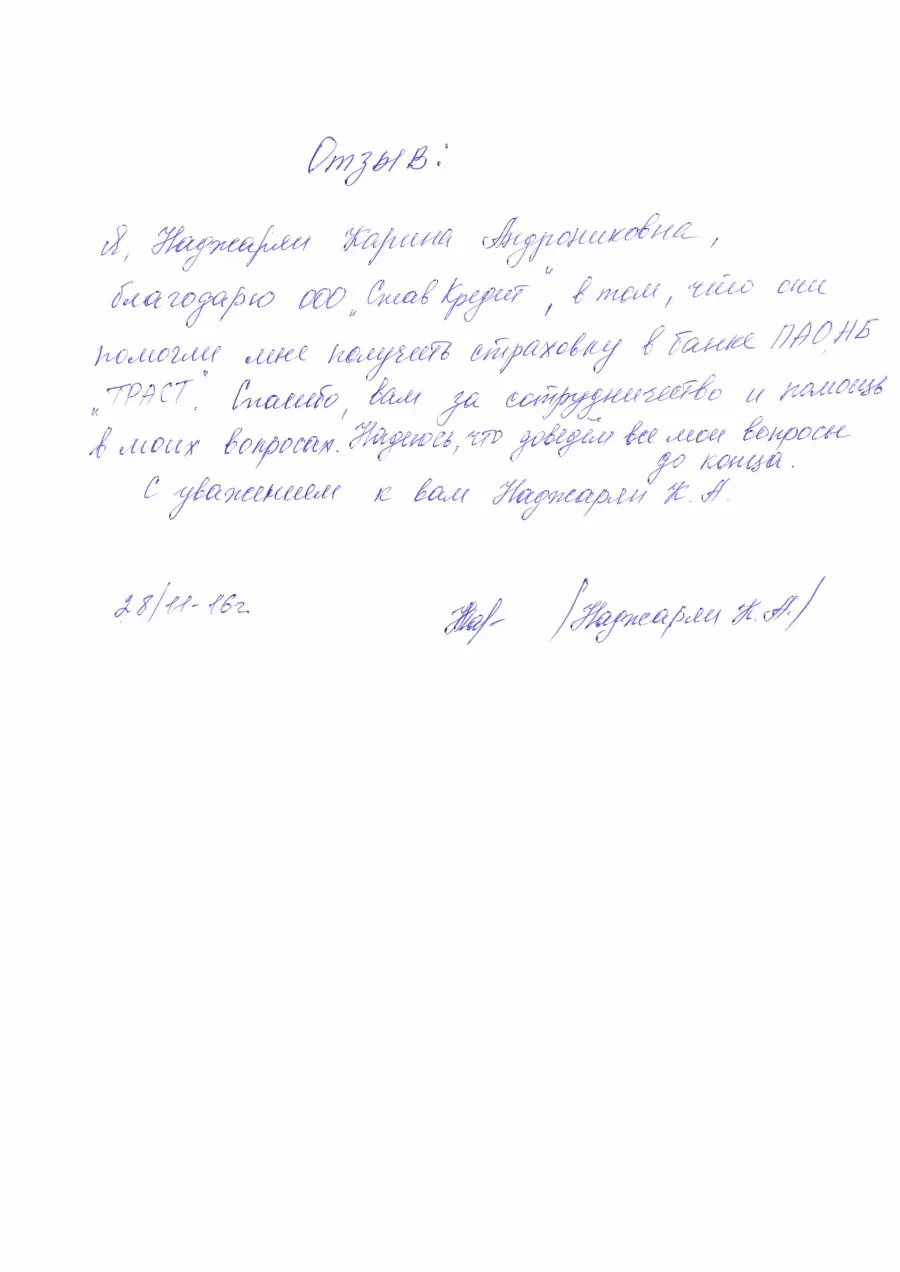 Отзыв:
Я, Наджарян Карина Андрониковна,
благодарю ООО „Став Кредит“, в том, что они
помогли мне получить страховку в банке ПАО НБ
„ТРАСТ“. Спасибо, вам за сотрудничество и помощь
в моих вопросах. Надеюсь, что доведём все мои вопросы
до конца.
С уважением к вам Наджарян К. А.
28/11-16г.
/Наджарян К. А./